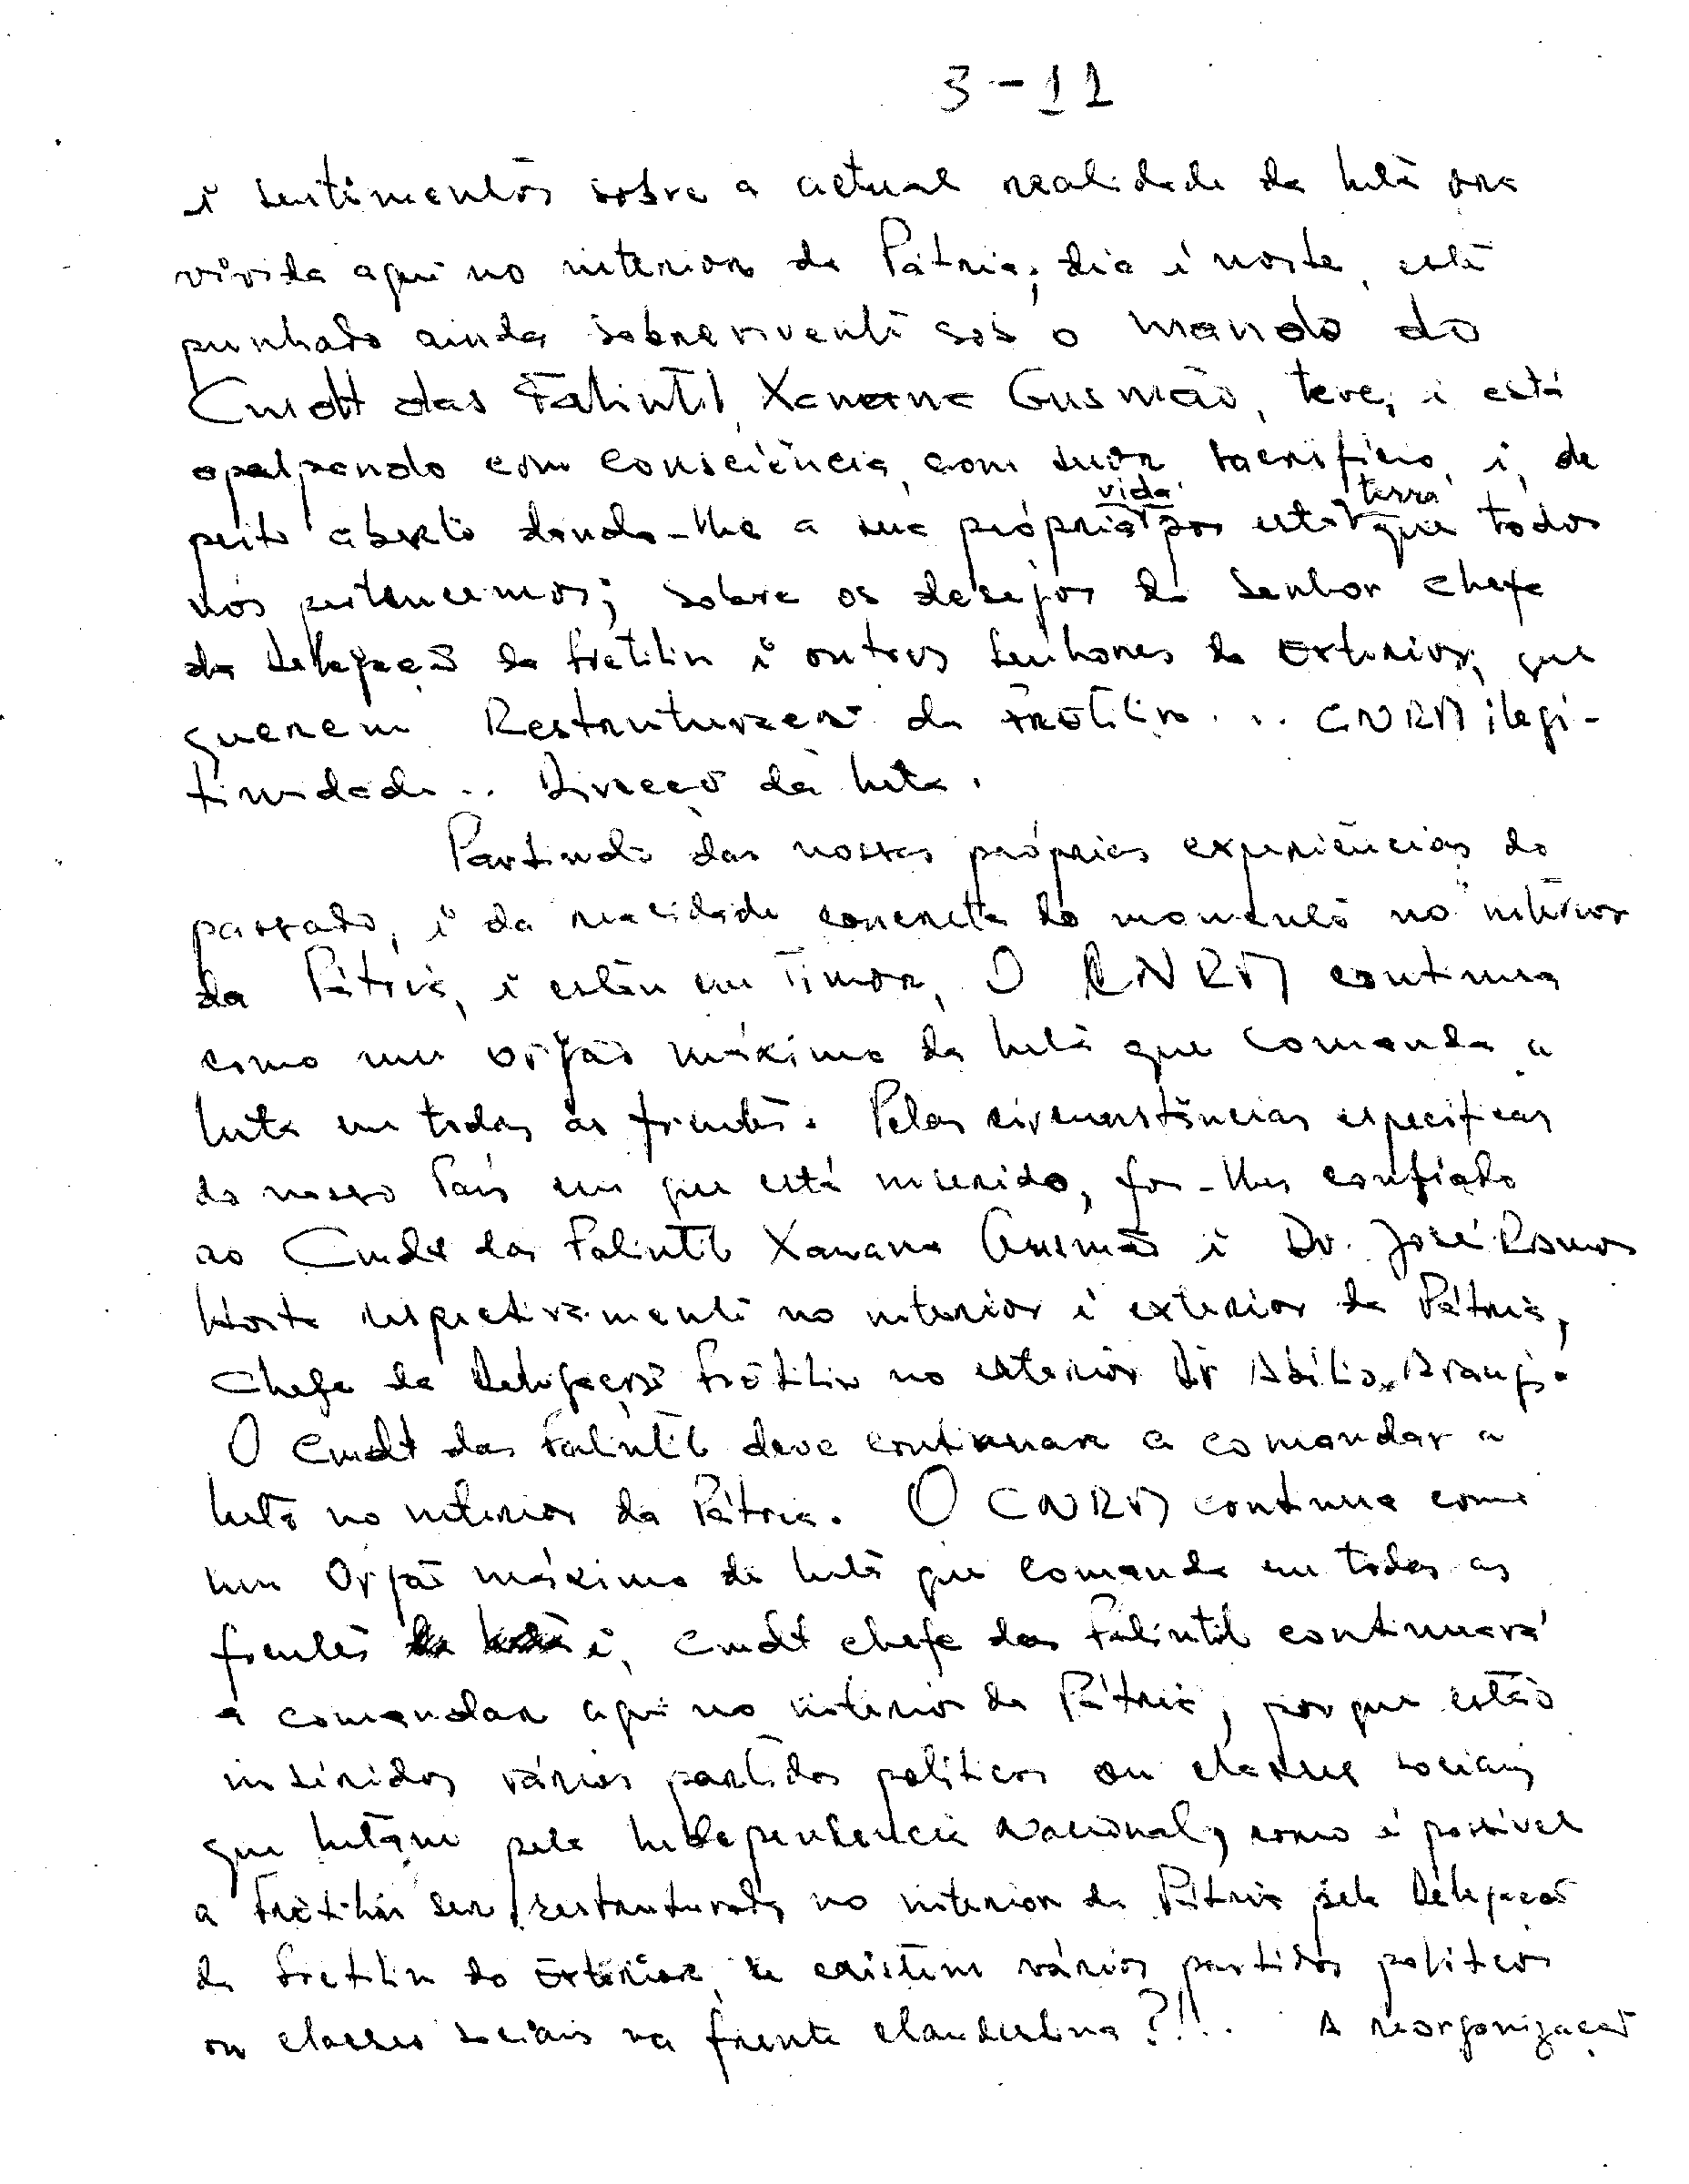 3-11
e sentimentos sobre a actual realidade da luta ora
vivida aqui no interior da Pátria, dia e noite, este
punhado ainda sobrevivente sob o mando do
Cmdt das Falintil, Xanana Gusmão, teve, e está
apalpando com consciência, com suor, sacrifício, e, de
peito aberto dando-lhe a sua própria vida por esta terra que todos
nós pertencemos; sobre os desejos do Senhor Chefe
da Delegação da Fretilin e outros Senhores do Exterior, que
querem Restruturação da Fretilin... CNRM ilegi-
timidade... Direcção da luta.
Partindo das nossas próprias experiências do
passado, e da realidade concreta do momento no interior
da Pátria, e estão em Timor, O CNRM continua
como um orgão máximo da luta que comanda a
luta em todas as frentes. Pelas circunstâncias específicas
do nosso País em que está inserido, foi-lhes confiado
ao Cmdt das Falintil Xanana Gusmão e Dr. José Ramos
Horta respectivamente no interior e exterior da Pátria,
Chefe da Delegação Fretilin no exterior Dr Abílio Araujo.
O Cmdt das Falintil deve continuar a comandar a
luta no interior da Pátria. O CNRM continua como
um Orgão máximo da luta que comanda em todas as
frentes e, Cmdt chefe das Falintil continuará
a comandar aqui no interior da Pátria, porque estão
inseridos vários partidos políticos ou classes sociais
que lutam pela Independência Nacional, como é possível
a Fretilin ser restruturada no interior da Pátria pela Delegação
da Fretilin do Exterior, se existem vários partidos políticos
ou classes sociais na frente clandestina?!!.. A reorganização